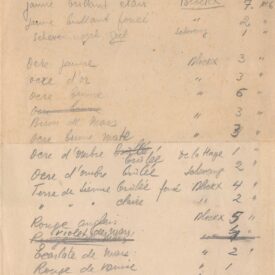 jaune brillant clair Blockx 7
jaune brillant foncé " 2 "
Scheveningh geel Scheveng 1 "
Ocre jaune Blockx 3 "
ocre d'or " 3 "
ocre brune " 6 "
Ocre brune
Brun de Mars " 2 "
Ocre brune mate " 3 "
Ocre d'ombre brûlée de la Haye 1 "
Ocre d'ombre brûlée 2 "
Terre de Sienne brûlée foncé Blockx 4 "
" " " claire " 2 "
Rouge anglais Blockx 5 "
Ecarlate de Mars " 2 "
Rouge de " 1 "